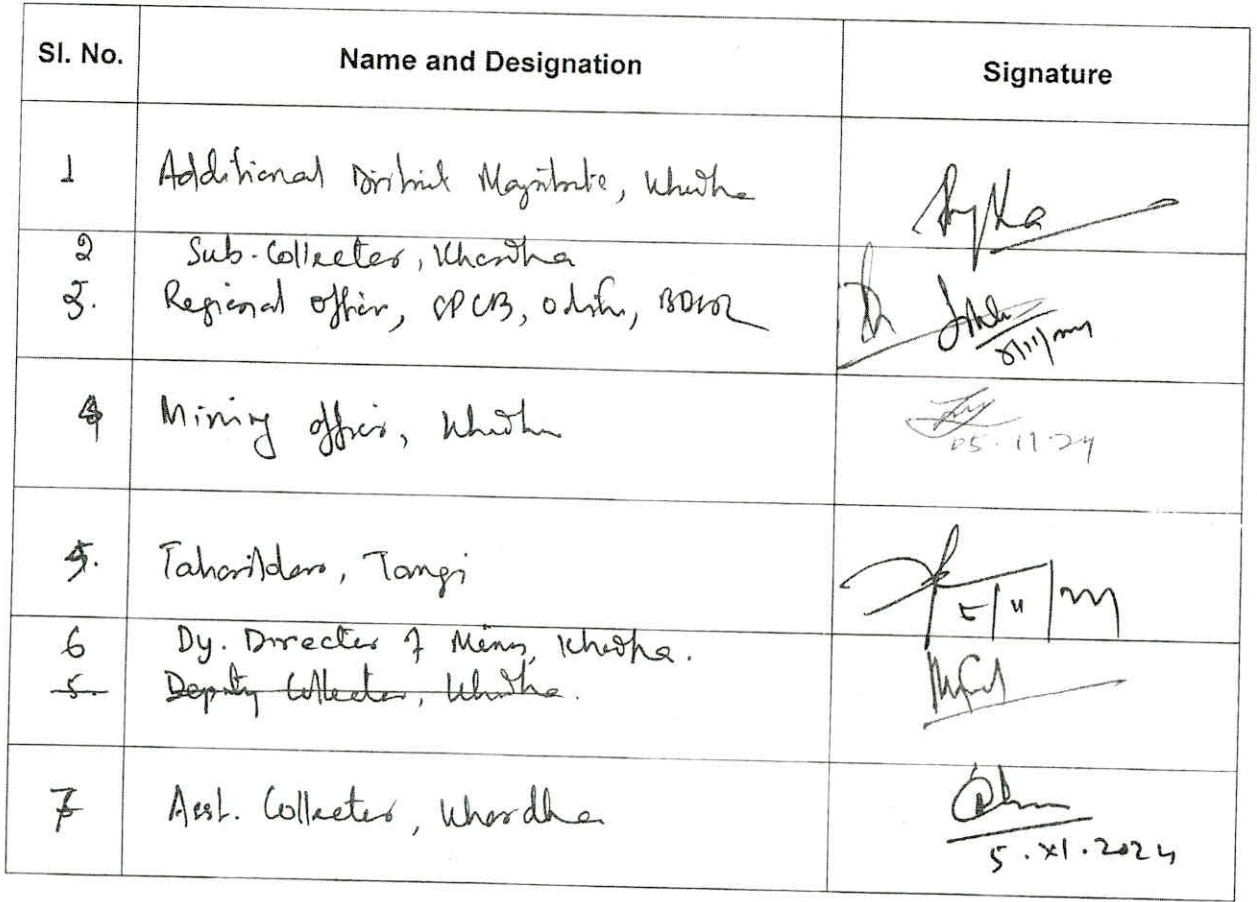 Sl. No. Name and Designation Signature
1 Additional District Magistrate, Khordha
2 Sub-Collector, Khordha
3. Regional Officer, SPCB, Odisha, BBSR
4 Mining Officer, Khordha
05.11.24
5. Tahasildar, Tangi
5/11/24
6 Dy. Director of Mines, Khordha.
5. Deputy Collector, Khordha.
7 Asst. Collector, Khordha
5.XI.2024